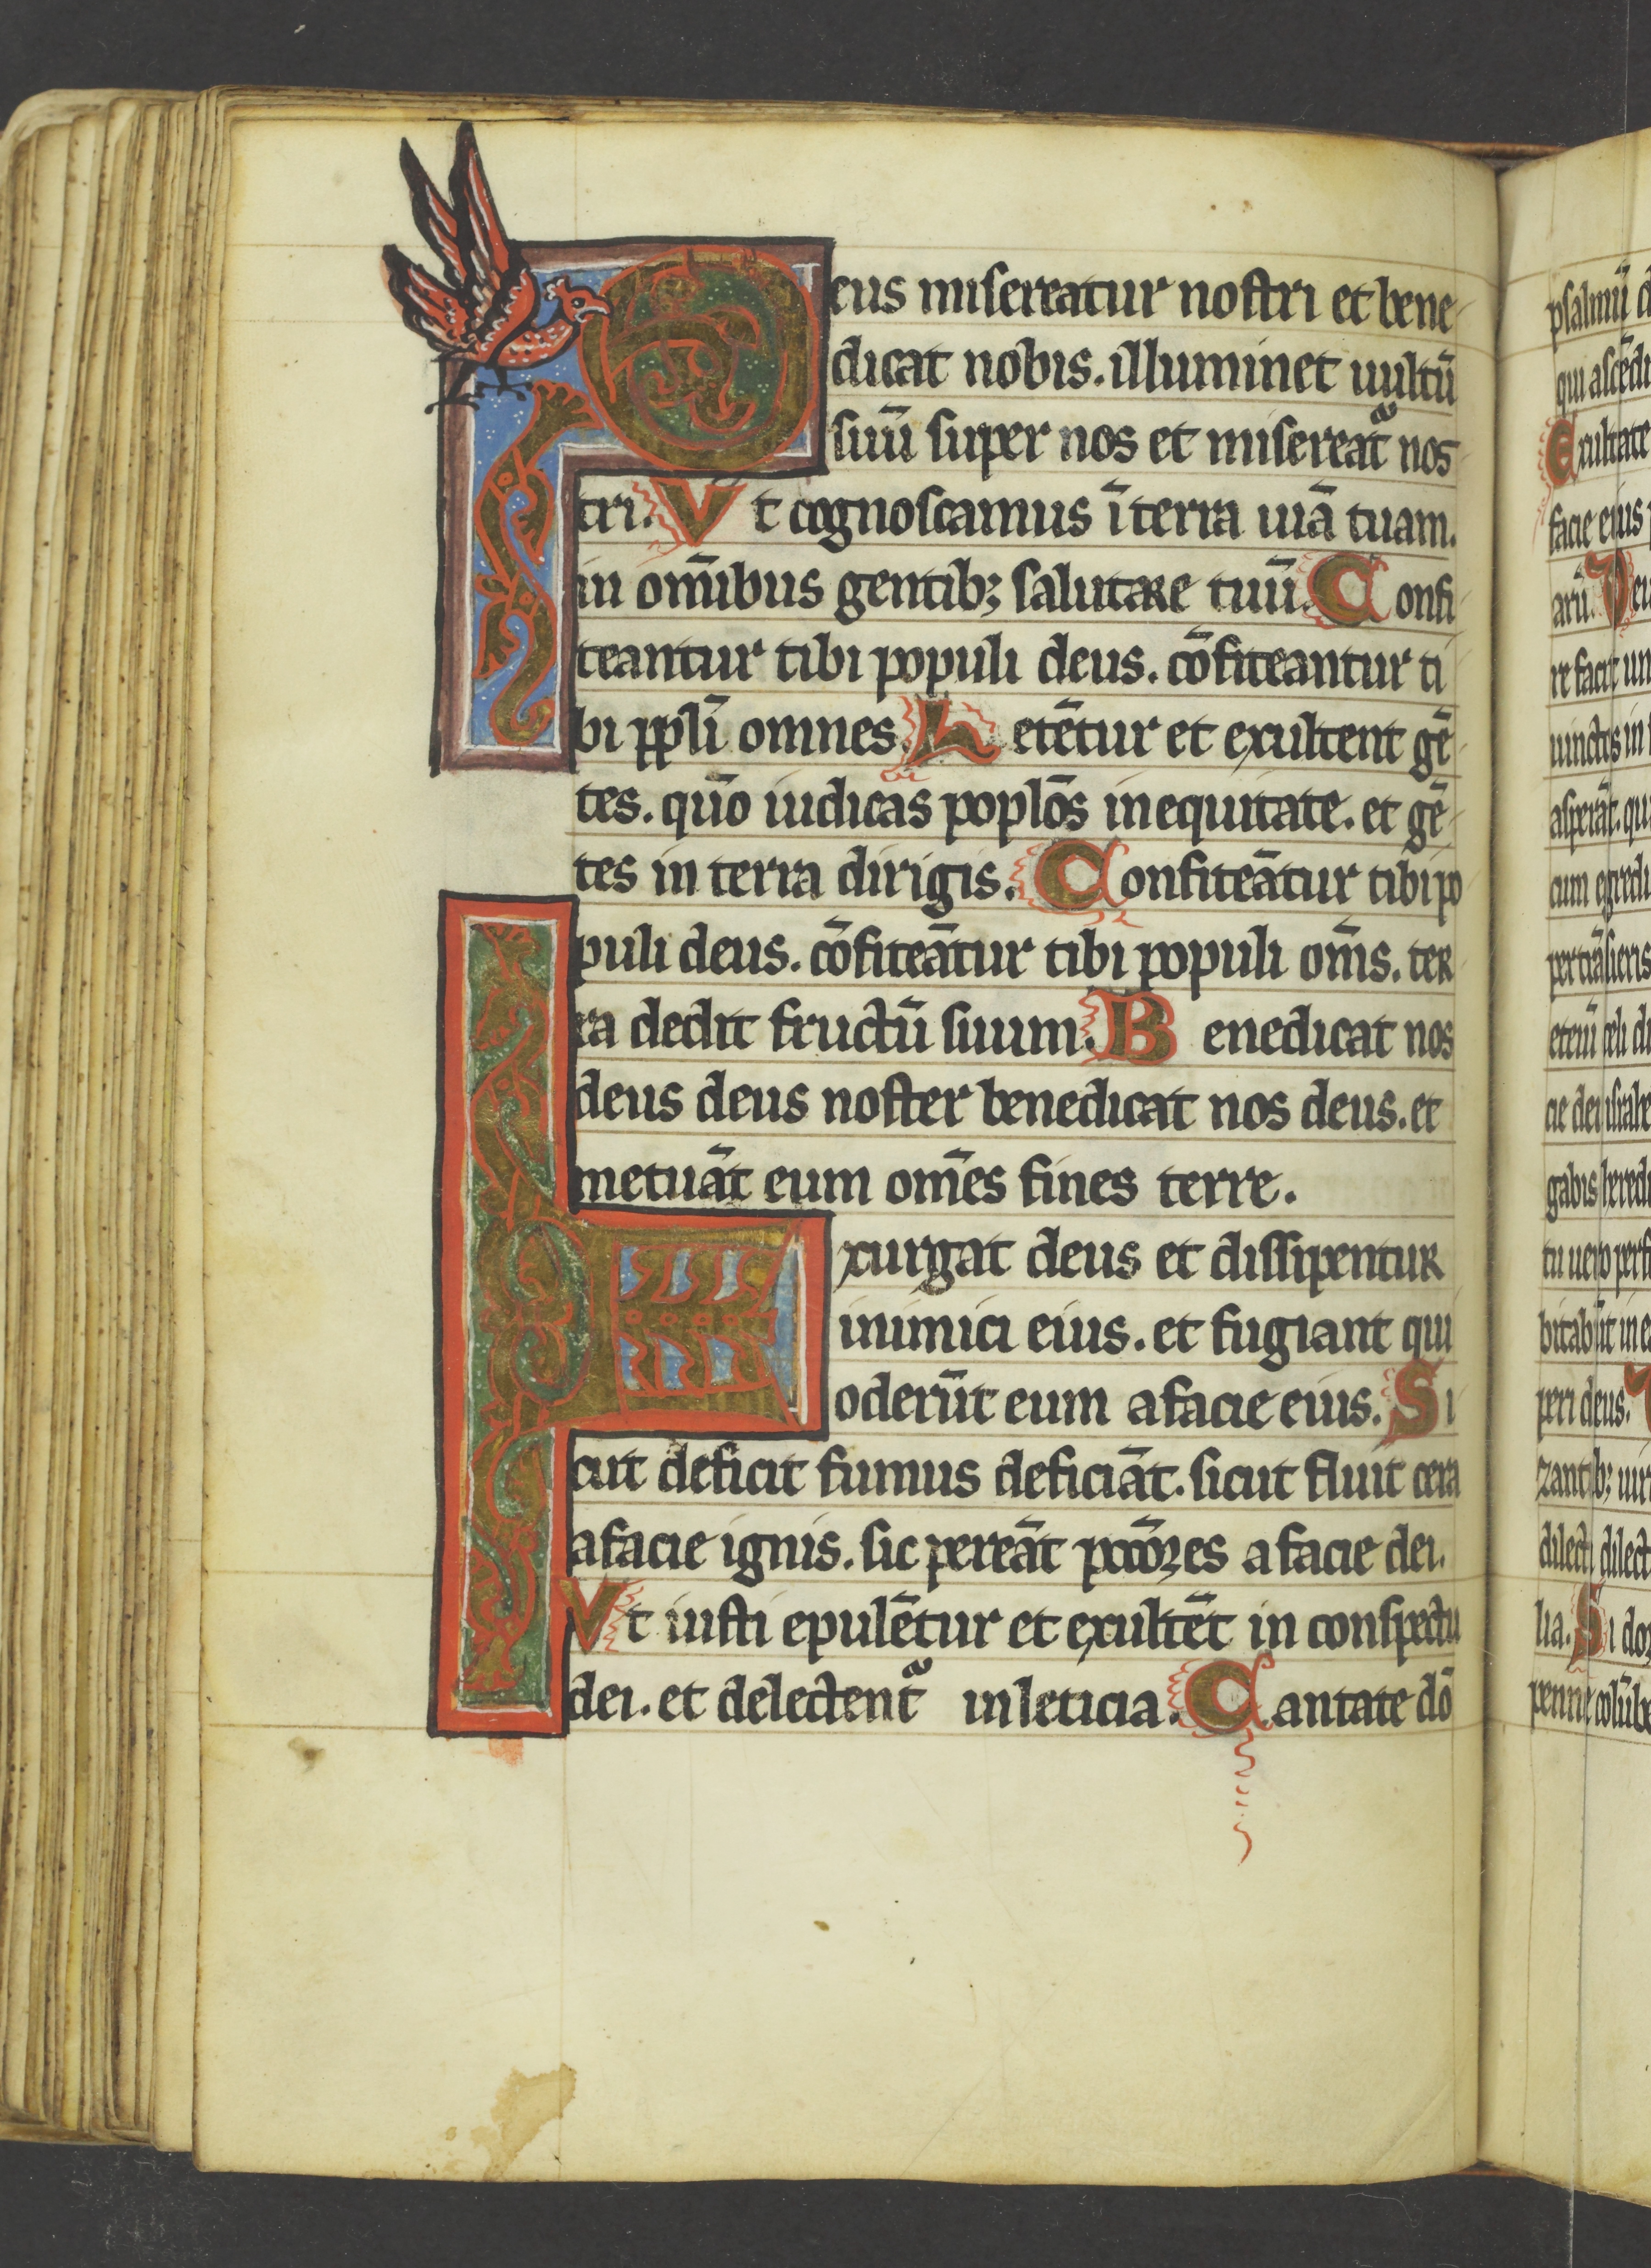 Deus misereatur nostri et bene
dicat nobis. illuminet uultū
suū super nos et misereat᷑ nos
tri. Vt cognoscamus ī terra uiā tuam.
in om̄ibus gentib; salutare tuū. Confi
teantur tibi populi deus. cōfiteantur ti
bi pp̄li omnes. Letētur et exultent gē
tes. quō iudicas poplōs in equitate. et gē
tes in terra dirigis. Confiteātur tibi po
puli deus. cōfiteātur tibi populi om̄s. ter
ra dedit fructū suum. Benedicat nos
deus deus noster benedicat nos deus. et
metuāt eum om̄es fines terre.
Exurgat deus et dissipentur
inimici eius. et fugiant qui
oderūt eum a facie eius. Si
cut deficit fumus deficiāt. sicut fluit cera
a facie ignis. sic pereāt pccōres a facie dei.
Vt iusti epulētur et exultēt in conspectu
dei. et delectent᷑ in leticia. Cantate dō
psalmū d
qui ascēdi
Exultate
facie eius
arū. Deu
re facit un
uinctos in
asperāt. qu
cum egredi
pertrāsieris
etenī celi di
cie dei israhe
gabis heredi
tu uero perfe
bitabūt in ea
peri deus.
zantib; uir
dilecti dilect
lia. Si dor
penne colūbe